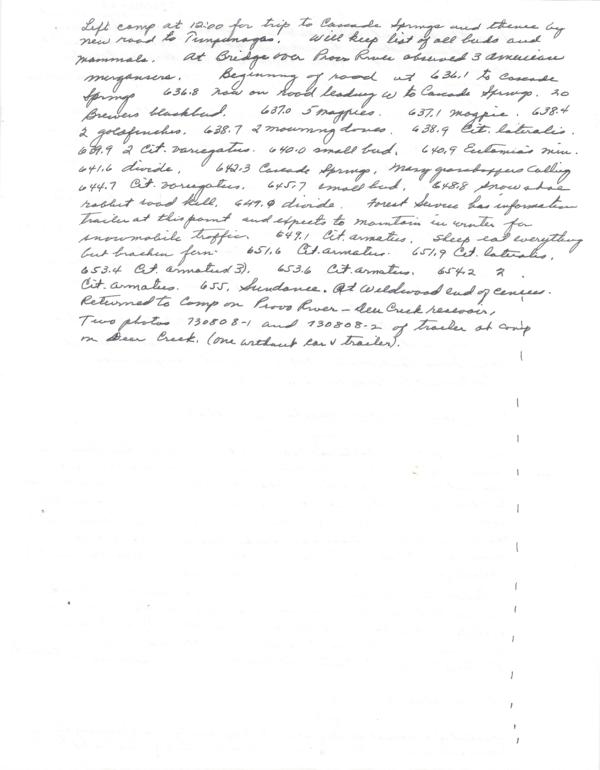 Left camp at 12:00 for trip to Cascade Springs and thence by
new road to Timpanagas. Will keep list of all birds and
mammals. At Bridge over Provo River observed 3 american
mergansers. Beginning of road at 636.1 to Cascade
Springs 636.8 now on road leading W to Cascade Springs. 20
Brewers blackbird. 637.0 5 magpies. 637.1 magpie. 638.4
2 goldfinches. 638.7 2 mourning doves. 638.9 Cit. lateralis.
639.9 2 Cit. variegatus. 640.0 small bird. 640.9 Eutamias min.
641.6 divide. 642.3 Cascade Springs. Many grasshoppers calling
644.7 Cit. variegatus. 645.7 small bird. 648.8 snow shoe
rabbit road kill. 649.0 divide. Forest Service has information
trailer at this point and expects to maintain in winter for
snowmobile traffic. 649.1 Cit. armatus. Sheep eat everything
but bracken fern. 651.6 Cit. armatus. 651.9 Cit. lateralis.
653.4 Cit. armatus 3). 653.6 Cit. armatus. 654.2 2
Cit. armatus. 655. Sundance. At Wildwood end of census.
Returned to Camp on Provo River - Deer Creek reservoir,
Two photos 730808-1 and 730808-2 of trailer at camp
on Deer Creek. (one without car & trailer).